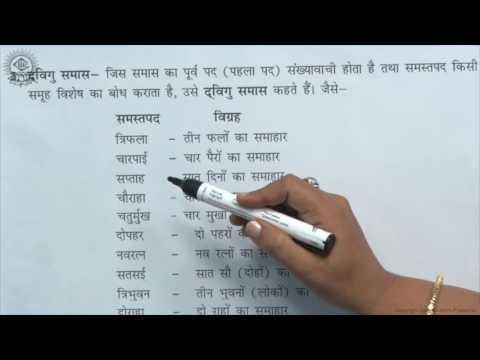 3. द्विगु समास– जिस समास का पूर्व पद (पहला पद) संख्यावाची होता है तथा समस्तपद किसी
समूह विशेष का बोध कराता है, उसे द्विगु समास कहते हैं। जैसे–
समस्तपद विग्रह
त्रिफला – तीन फलों का समाहार
चारपाई – चार पैरों का समाहार
सप्ताह – सात दिनों का समाहार
चौराहा –
चतुर्मुख – चार मुखों
दोपहर – दो पहरों का
नवरत्न – नव रत्नों का
सतसई – सात सौ (दोहों) का
त्रिभुवन – तीन भुवनों (लोकों) का
दोराहा – दो राहों का समाहार